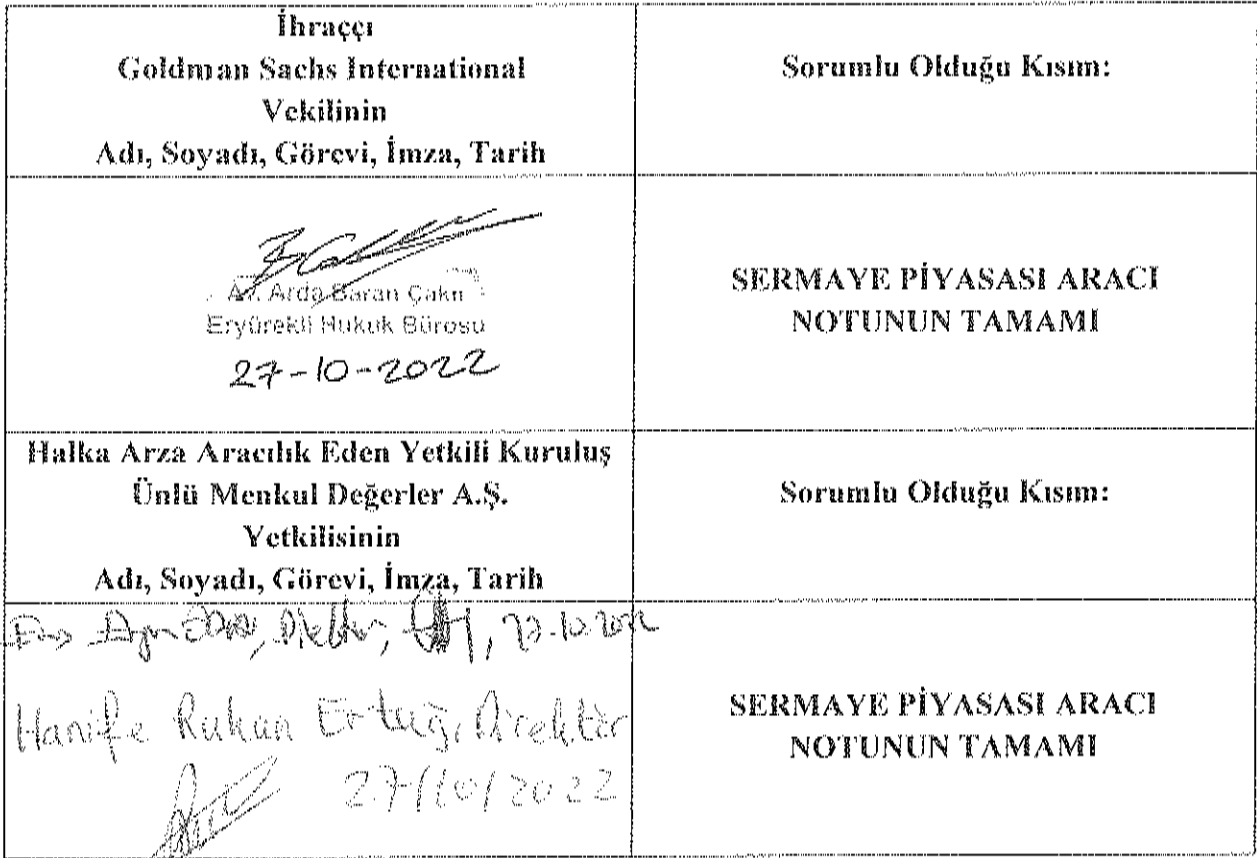 İhraççı
Goldman Sachs International
Vekilinin
Adı, Soyadı, Görevi, İmza, Tarih
Sorumlu Olduğu Kısım:
Av. Arda Baran Çakır
Eryürekli Hukuk Bürosu
27-10-2022
SERMAYE PİYASASI ARACI
NOTUNUN TAMAMI
Halka Arza Aracılık Eden Yetkili Kuruluş
Ünlü Menkul Değerler A.Ş.
Yetkilisinin
Adı, Soyadı, Görevi, İmza, Tarih
Sorumlu Olduğu Kısım:
27.10.2022
Hanife Ruhan Ertuğ, Direktör
27/10/2022
SERMAYE PİYASASI ARACI
NOTUNUN TAMAMI